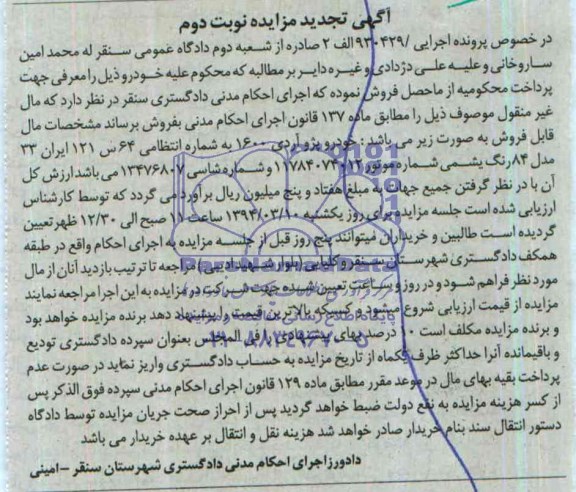 آگهی تجدید مزایده نوبت دوم
در خصوص پرونده اجرایی /۹۳۰۴۲۹الف ۲ صادره از شعبه دوم دادگاه عمومی سنقر له محمد امین
ساروخانی و علیه علی دژدادی و غیره دایر بر مطالبه که محکوم علیه خودرو ذیل را معرفی جهت
پرداخت محکومیه از ماحصل فروش نموده که اجرای احکام مدنی دادگستری سنقر در نظر دارد که مال
غیر منقول موصوف ذیل را مطابق ماده ۱۳۷ قانون اجرای احکام مدنی بفروش برساند مشخصات مال
قابل فروش به صورت زیر می باشد: خودرو پژو آردی ۱۶۰۰ به شماره انتظامی ۶۴س ۱۲۱ ایران ۳۳
مدل ۸۴ رنگ یشمی شماره موتور ۱۱۷۸۴۰۷۴۰۱۲ و شماره شاسی ۱۳۴۷۶۸۰۷ می باشد ارزش کل
آن با در نظر گرفتن جمیع جهات به مبلغ هفتاد و پنج میلیون ریال برآورد می گردد که توسط کارشناس
ارزیابی شده است جلسه مزایده برای روز یکشنبه ۱۳۹۴/۰۳/۱۰ ساعت ۱۱ صبح الی ۱۲/۳۰ ظهر تعیین
گردیده است طالبین و خریداران میتوانند پنج روز قبل از جلسه مزایده به اجرای احکام واقع در طبقه
همکف دادگستری شهرستان سنقر و کلیایی (بلوار شهید ادیبی) مراجعه تا ترتیب بازدید آنان از مال
مورد نظر فراهم شود و در روز و ساعت تعیین شده جهت شرکت در مزایده به این اجرا مراجعه نمایند
مزایده از قیمت ارزیابی شروع میشود و کسیکه بالاترین قیمت را پیشنهاد دهد برنده مزایده خواهد بود
و برنده مزایده مکلف است ۱۰ درصد بهای پیشنهادی را فی المجلس بعنوان سپرده دادگستری تودیع
و باقیمانده آنرا حداکثر ظرف یکماه از تاریخ مزایده به حساب دادگستری واریز نماید در صورت عدم
پرداخت بقیه بهای مال در موعد مقرر مطابق ماده ۱۲۹ قانون اجرای احکام مدنی سپرده فوق الذکر پس
از کسر هزینه مزایده به نفع دولت ضبط خواهد گردید پس از احراز صحت جریان مزایده توسط دادگاه
دستور انتقال سند بنام خریدار صادر خواهد شد هزینه نقل و انتقال بر عهده خریدار می باشد
دادورز اجرای احکام مدنی دادگستری شهرستان سنقر – امینی